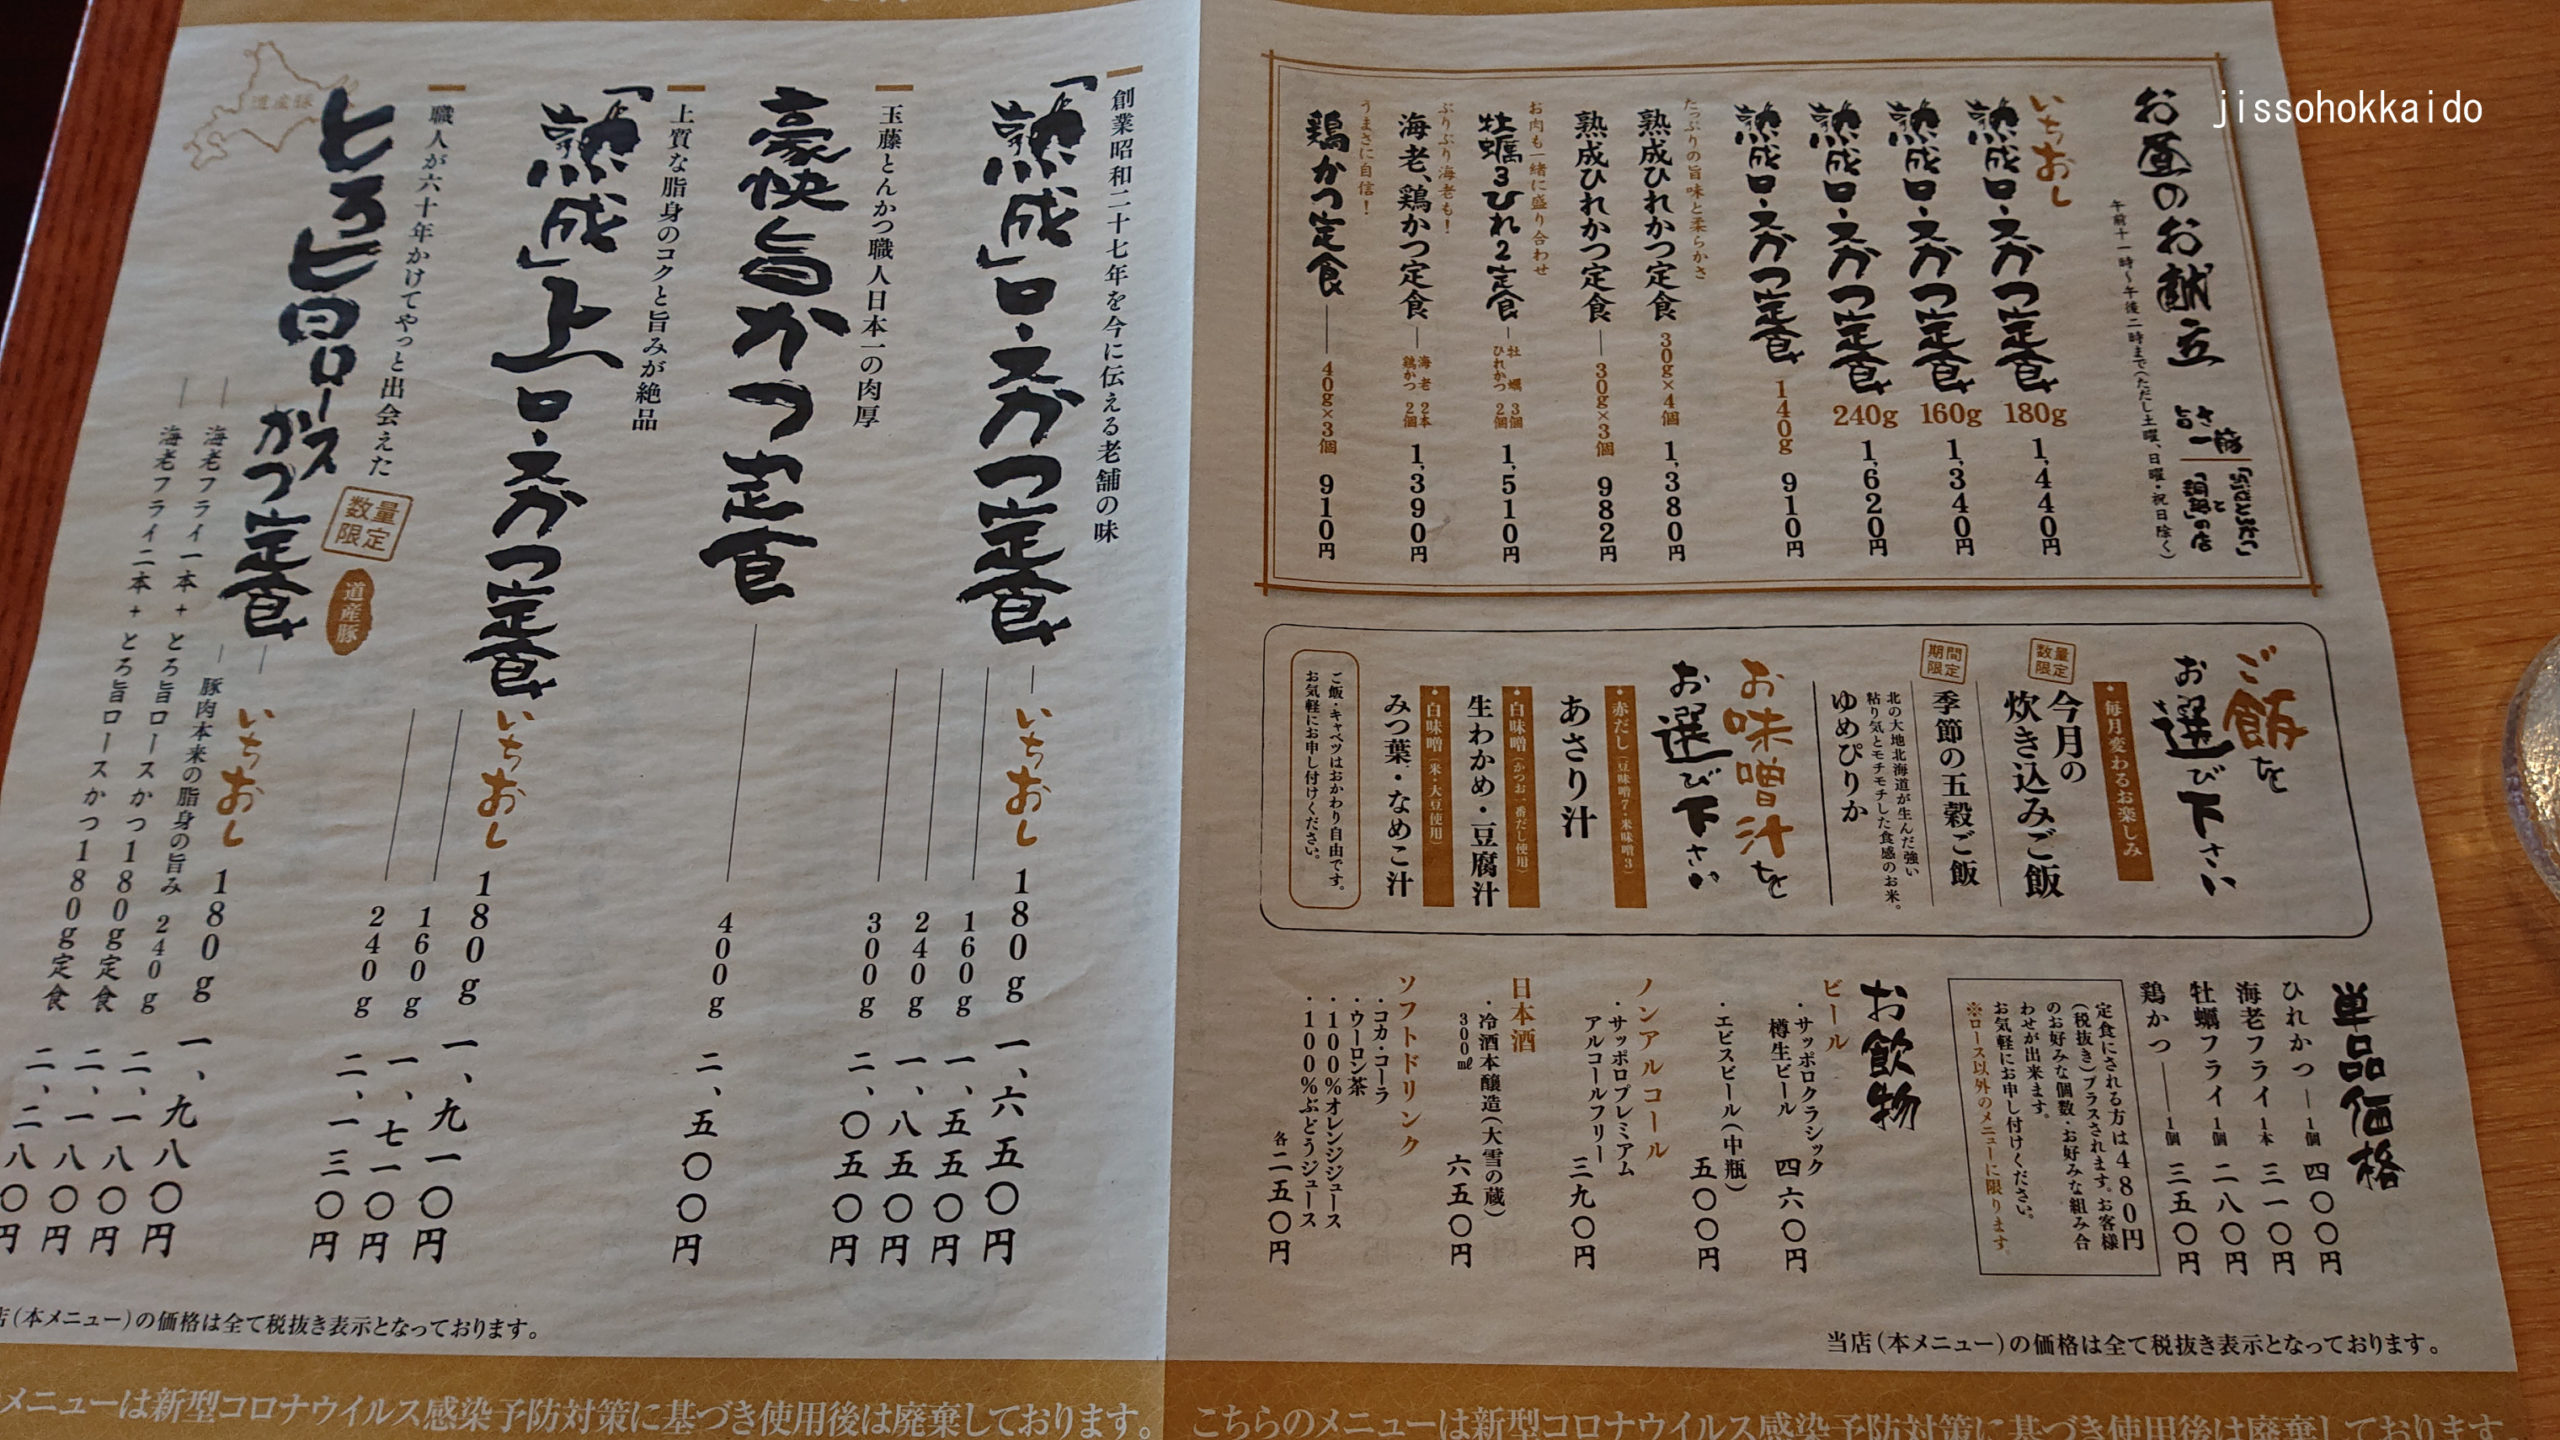 jissohokkaido
お昼のお献立
午前十一時〜午後二時まで(ただし土曜、日曜・祝日除く)
いちおし
熟成ロースかつ定食 180g 1,440円
熟成ロースかつ定食 160g 1,340円
熟成ロースかつ定食 240g 1,620円
熟成ロースかつ定食 140g 910円
たっぷりの旨味と柔らかさ
熟成ひれかつ定食 30g×4個 1,380円
熟成ひれかつ定食 30g×3個 982円
お肉も一緒に盛り合わせ
牡蠣3ひれ2定食 牡蠣 3個 ひれかつ 2個 1,510円
ぷりぷり海老も!
海老、鶏かつ定食 海老 2本 鶏かつ 2個 1,390円
うまさに自信!
鶏かつ定食 40g×3個 910円
ご飯を
お選び下さい
・毎月変わるお楽しみ
数量限定
今月の
炊き込みご飯
期間限定
季節の五穀ご飯
北の大地北海道が生んだ強い
粘り気とモチモチした食感のお米。
ゆめぴりか
お味噌汁を
お選び下さい
・赤だし(豆味噌7・米味噌3)
あさり汁
・白味噌(かつお一番だし使用)
生わかめ・豆腐汁
・白味噌(米・大豆使用)
みつ葉・なめこ汁
ご飯・キャベツはおかわり自由です。
お気軽にお申し付けください。
単品価格
ひれかつ 1個 四〇〇円
海老フライ 1本 三一〇円
牡蠣フライ 1個 二八〇円
鶏かつ 1個 三五〇円
定食にされる方は480円
(税抜き)プラスされます。お客様
のお好みな個数・お好みな組み合
わせが出来ます。
お気軽にお申し付けください。
※ロース以外のメニューに限ります
お飲物
ビール
・サッポロクラシック
樽生ビール 四六〇円
・エビスビール(中瓶) 五〇〇円
ノンアルコール
・サッポロプレミアム
アルコールフリー 三九〇円
日本酒
・冷酒本醸造(大雪の蔵)
300㎖ 六五〇円
ソフトドリンク
・コカ・コーラ
・ウーロン茶
・100%オレンジジュース
・100%ぶどうジュース
各二五〇円
当店(本メニュー)の価格は全て税抜き表示となっております。
こちらのメニューは新型コロナウイルス感染予防対策に基づき使用後は廃棄しております。
創業昭和二十七年を今に伝える老舗の味
「熟成」ロースかつ定食
いちおし 180g 一、六五〇円
160g 一、五五〇円
240g 一、八五〇円
300g 二、〇五〇円
玉藤とんかつ職人日本一の肉厚
豪快旨かつ定食
400g 二、五〇〇円
上質な脂身のコクと旨みが絶品
「熟成」上ロースかつ定食
いちおし 180g 一、九一〇円
160g 一、七一〇円
240g 二、一三〇円
職人が六十年かけてやっと出会えた
数量限定
道産豚
とろ旨ロースかつ定食
道産豚
いちおし 180g 一、九八〇円
豚肉本来の脂身の旨み 240g 二、一八〇円
海老フライ一本+とろ旨ロースかつ180g定食 二、一八〇円
海老フライ二本+とろ旨ロースかつ180g定食 二、二八〇円
店(本メニュー)の価格は全て税抜き表示となっております。
メニューは新型コロナウイルス感染予防対策に基づき使用後は廃棄しております。